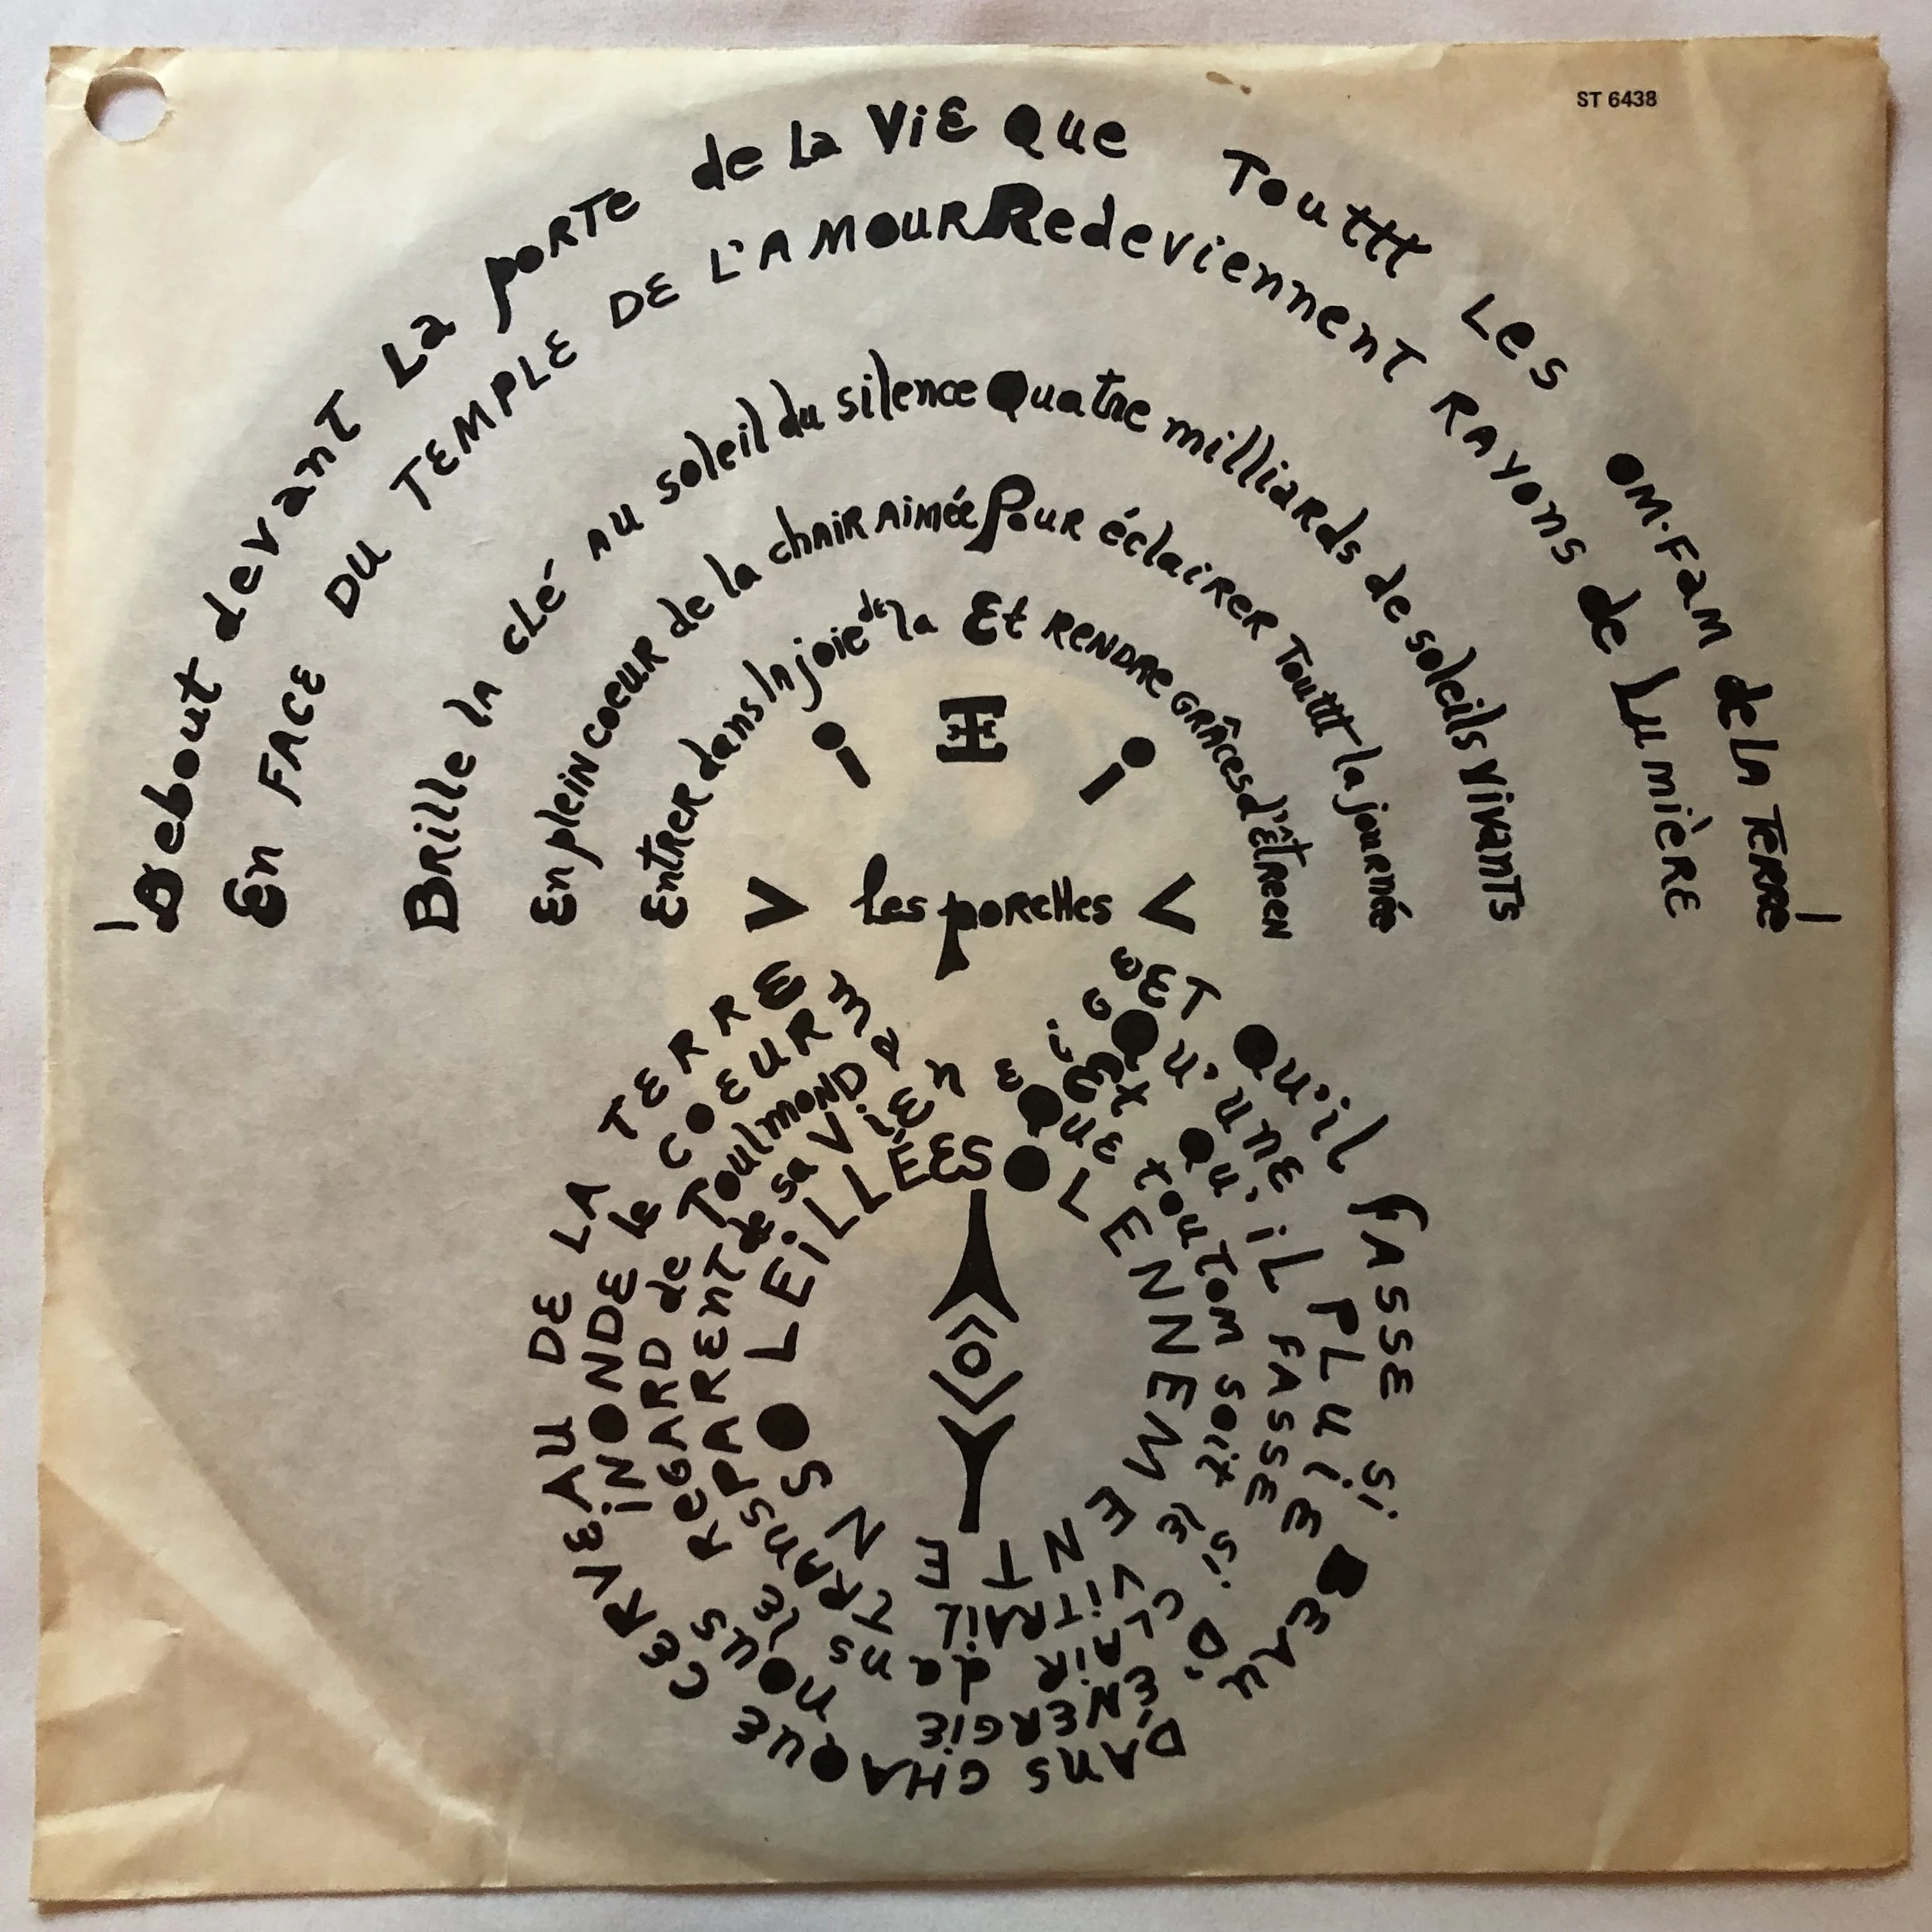 ST 6438
! Debout devant La porte de la ViE Que Touttt Les OM.Fam de La Terre !
En FACE DU TEMPLE DE L'AMOUR Redeviennent RAyons de LumièRE
Brille la clé au soleil du silence Quatre milliards de soleils vivants
En plein coeur de la chair aimée Pour éclairer Touttt la journée
Entrer dans la joie de la Et rendre grâces d'être en
les porelles
ET Qu'il fASSE si BEAU DANS CHAQUE CERVEAU DE LA TERRE
Qu'une PLuiE D'ÉNERGIE nous iNONDE le COEUR
Et Qu'iL FASSE si CLAIR dans le REGARD de Toulmond
Que toutom soit le ViTRAiL TRANSPARENT de sa ViE
SOLENNEMENT ENSOLEiLLÉES